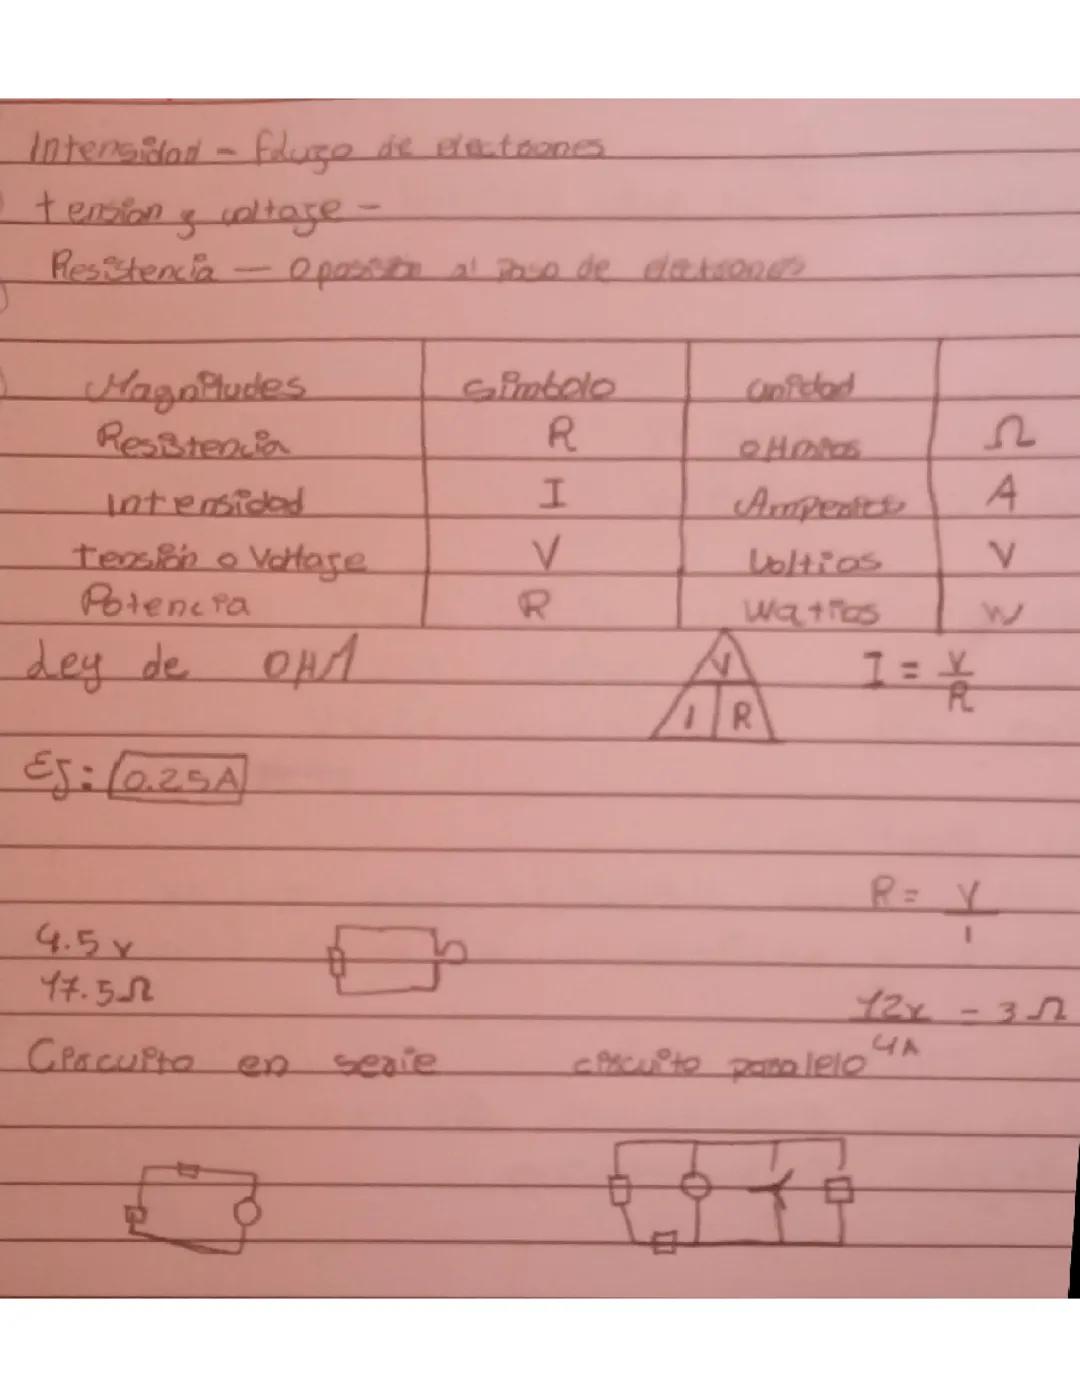 Intensidad - fluzo de electrones
tension y voltage -
Resistencia — Oposision al paso de electrones
Magnitudes símbolo unidad
Resistencia R oHmios Ω
Intensidad I Amperios A
tensión o Voltage V Voltios V
Potencia R watios W
Ley de OHM V I R I = V/R
Ej: 0.25A
R = V/I
4.5 v
17.5 Ω
12v/4A - 3 Ω
Circuito en serie circuito paralelo